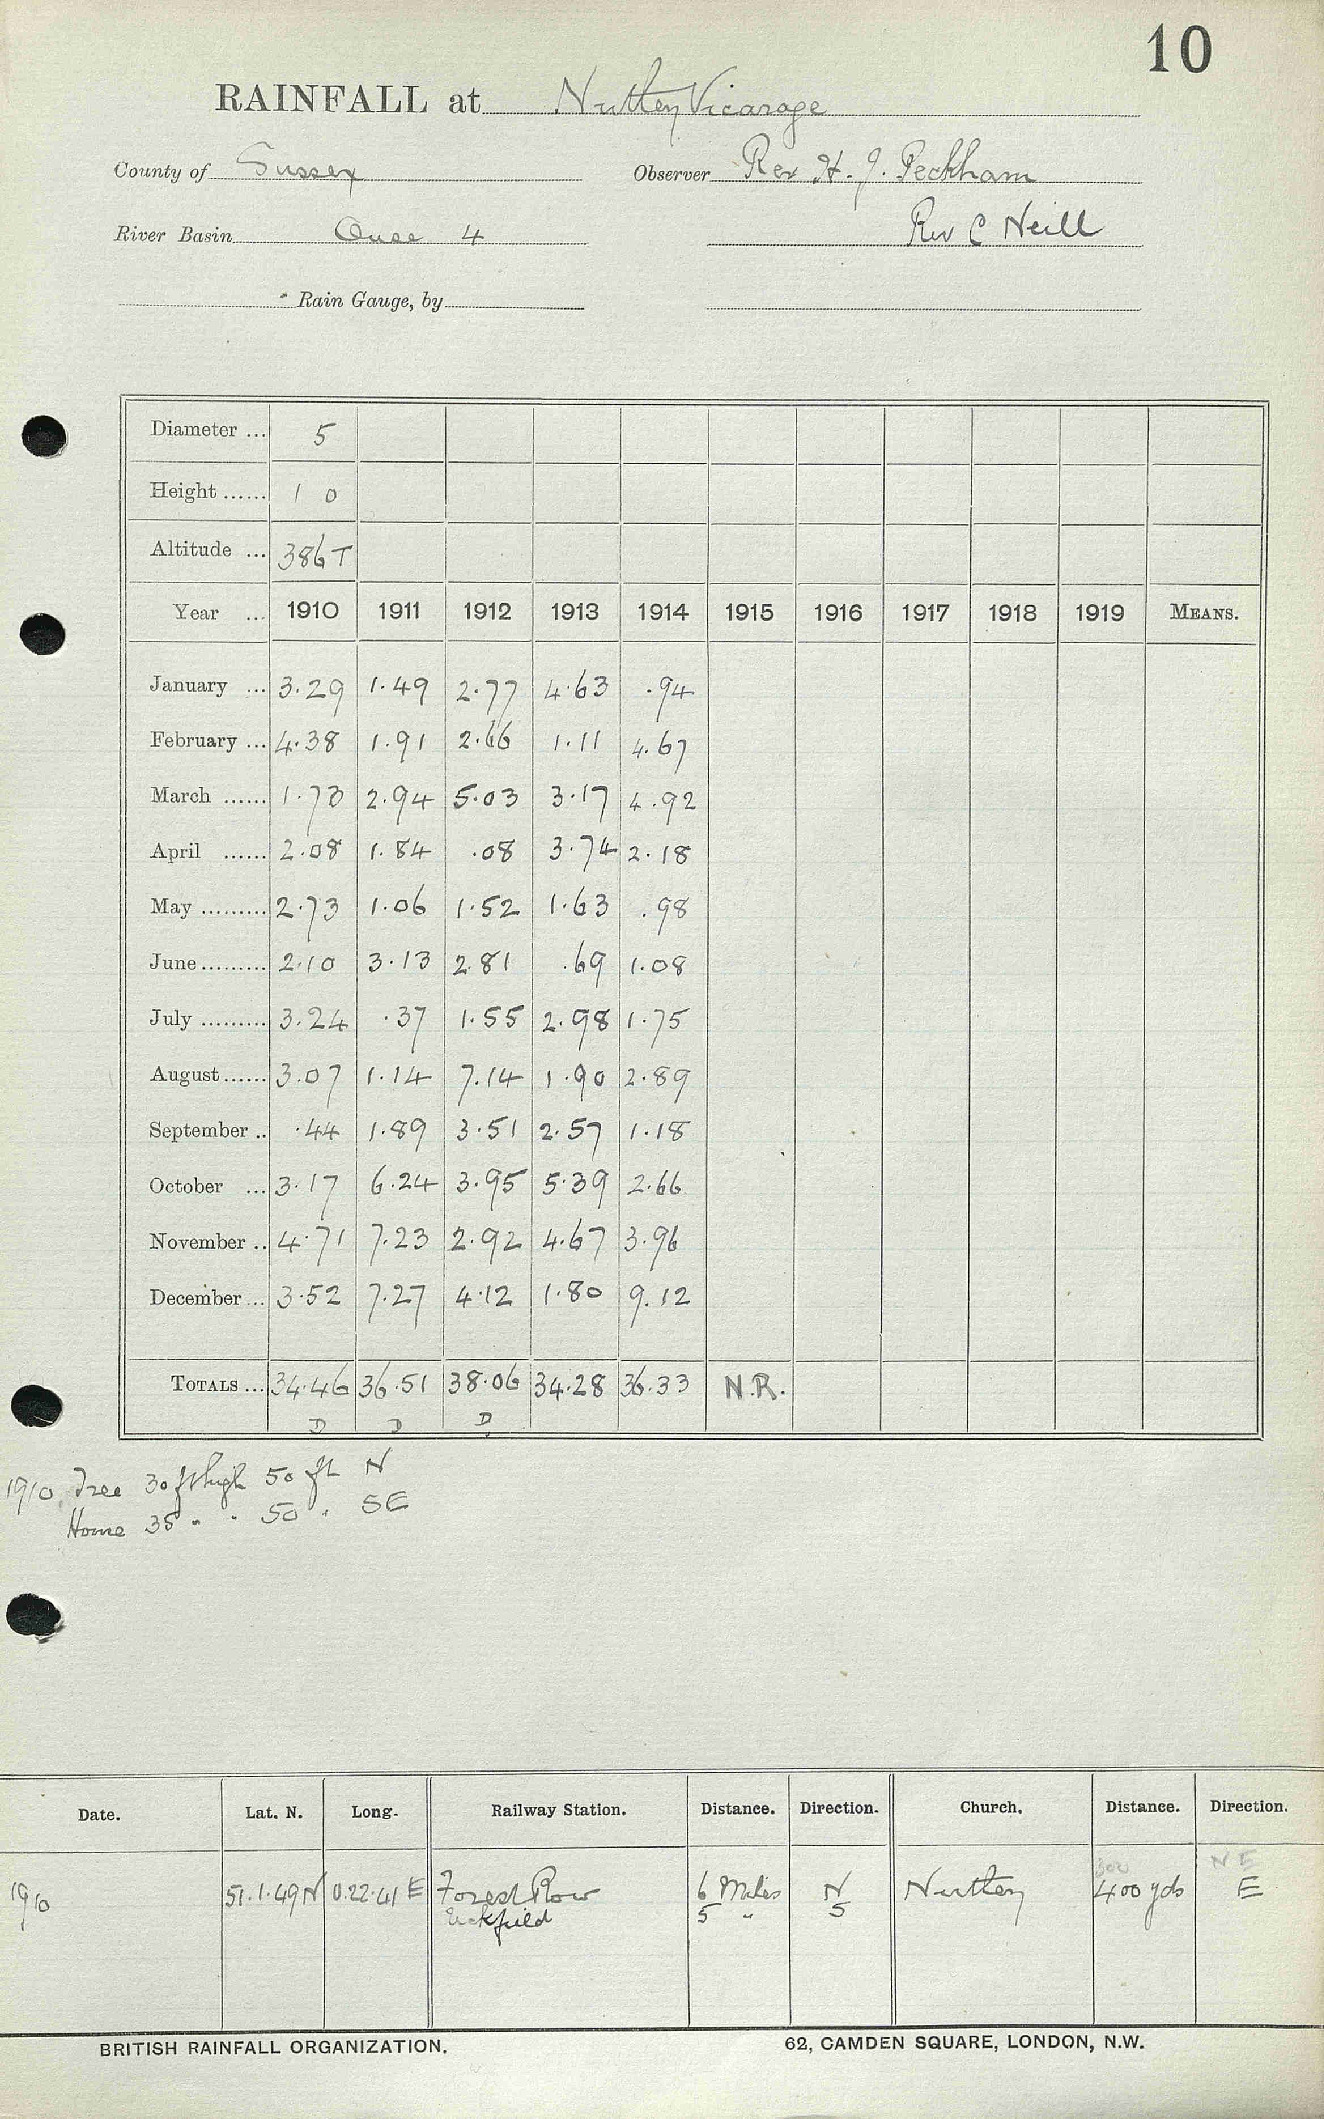 10
RAINFALL at Nutley Vicarage
County of Sussex Observer Rev H. J. Peckham
River Basin Ouse 4 Rev C Neill
Rain Gauge, by
Diameter ... 5
Height ...... 1 0
Altitude ... 386 T
Year ... 1910 1911 1912 1913 1914 1915 1916 1917 1918 1919 MEANS.
January ... 3.29 1.49 2.77 4.63 .94
February ... 4.38 1.91 2.66 1.11 4.67
March ...... 1.73 2.94 5.03 3.17 4.92
April ...... 2.08 1.84 .08 3.74 2.18
May ......... 2.73 1.06 1.52 1.63 .98
June ......... 2.10 3.13 2.81 .69 1.08
July ......... 3.24 .37 1.55 2.98 1.75
August ...... 3.07 1.14 7.14 1.90 2.89
September .. .44 1.89 3.51 2.57 1.18
October ... 3.17 6.24 3.95 5.39 2.66
November .. 4.71 7.23 2.92 4.67 3.96
December ... 3.52 7.27 4.12 1.80 9.12
TOTALS ... 34.46 36.51 38.06 34.28 36.33 N.R.
D D D
1910. Tree 30 ft high 50 ft N
House 35 " " 50 " SE
Date. Lat. N. Long. Railway Station. Distance. Direction. Church. Distance. Direction.
300 NE
1910 51.1.49 N 0.22.41 E Forest Row 6 Miles N Nutley 400 yds E
Uckfield 5 " S
BRITISH RAINFALL ORGANIZATION. 62, CAMDEN SQUARE, LONDON, N.W.